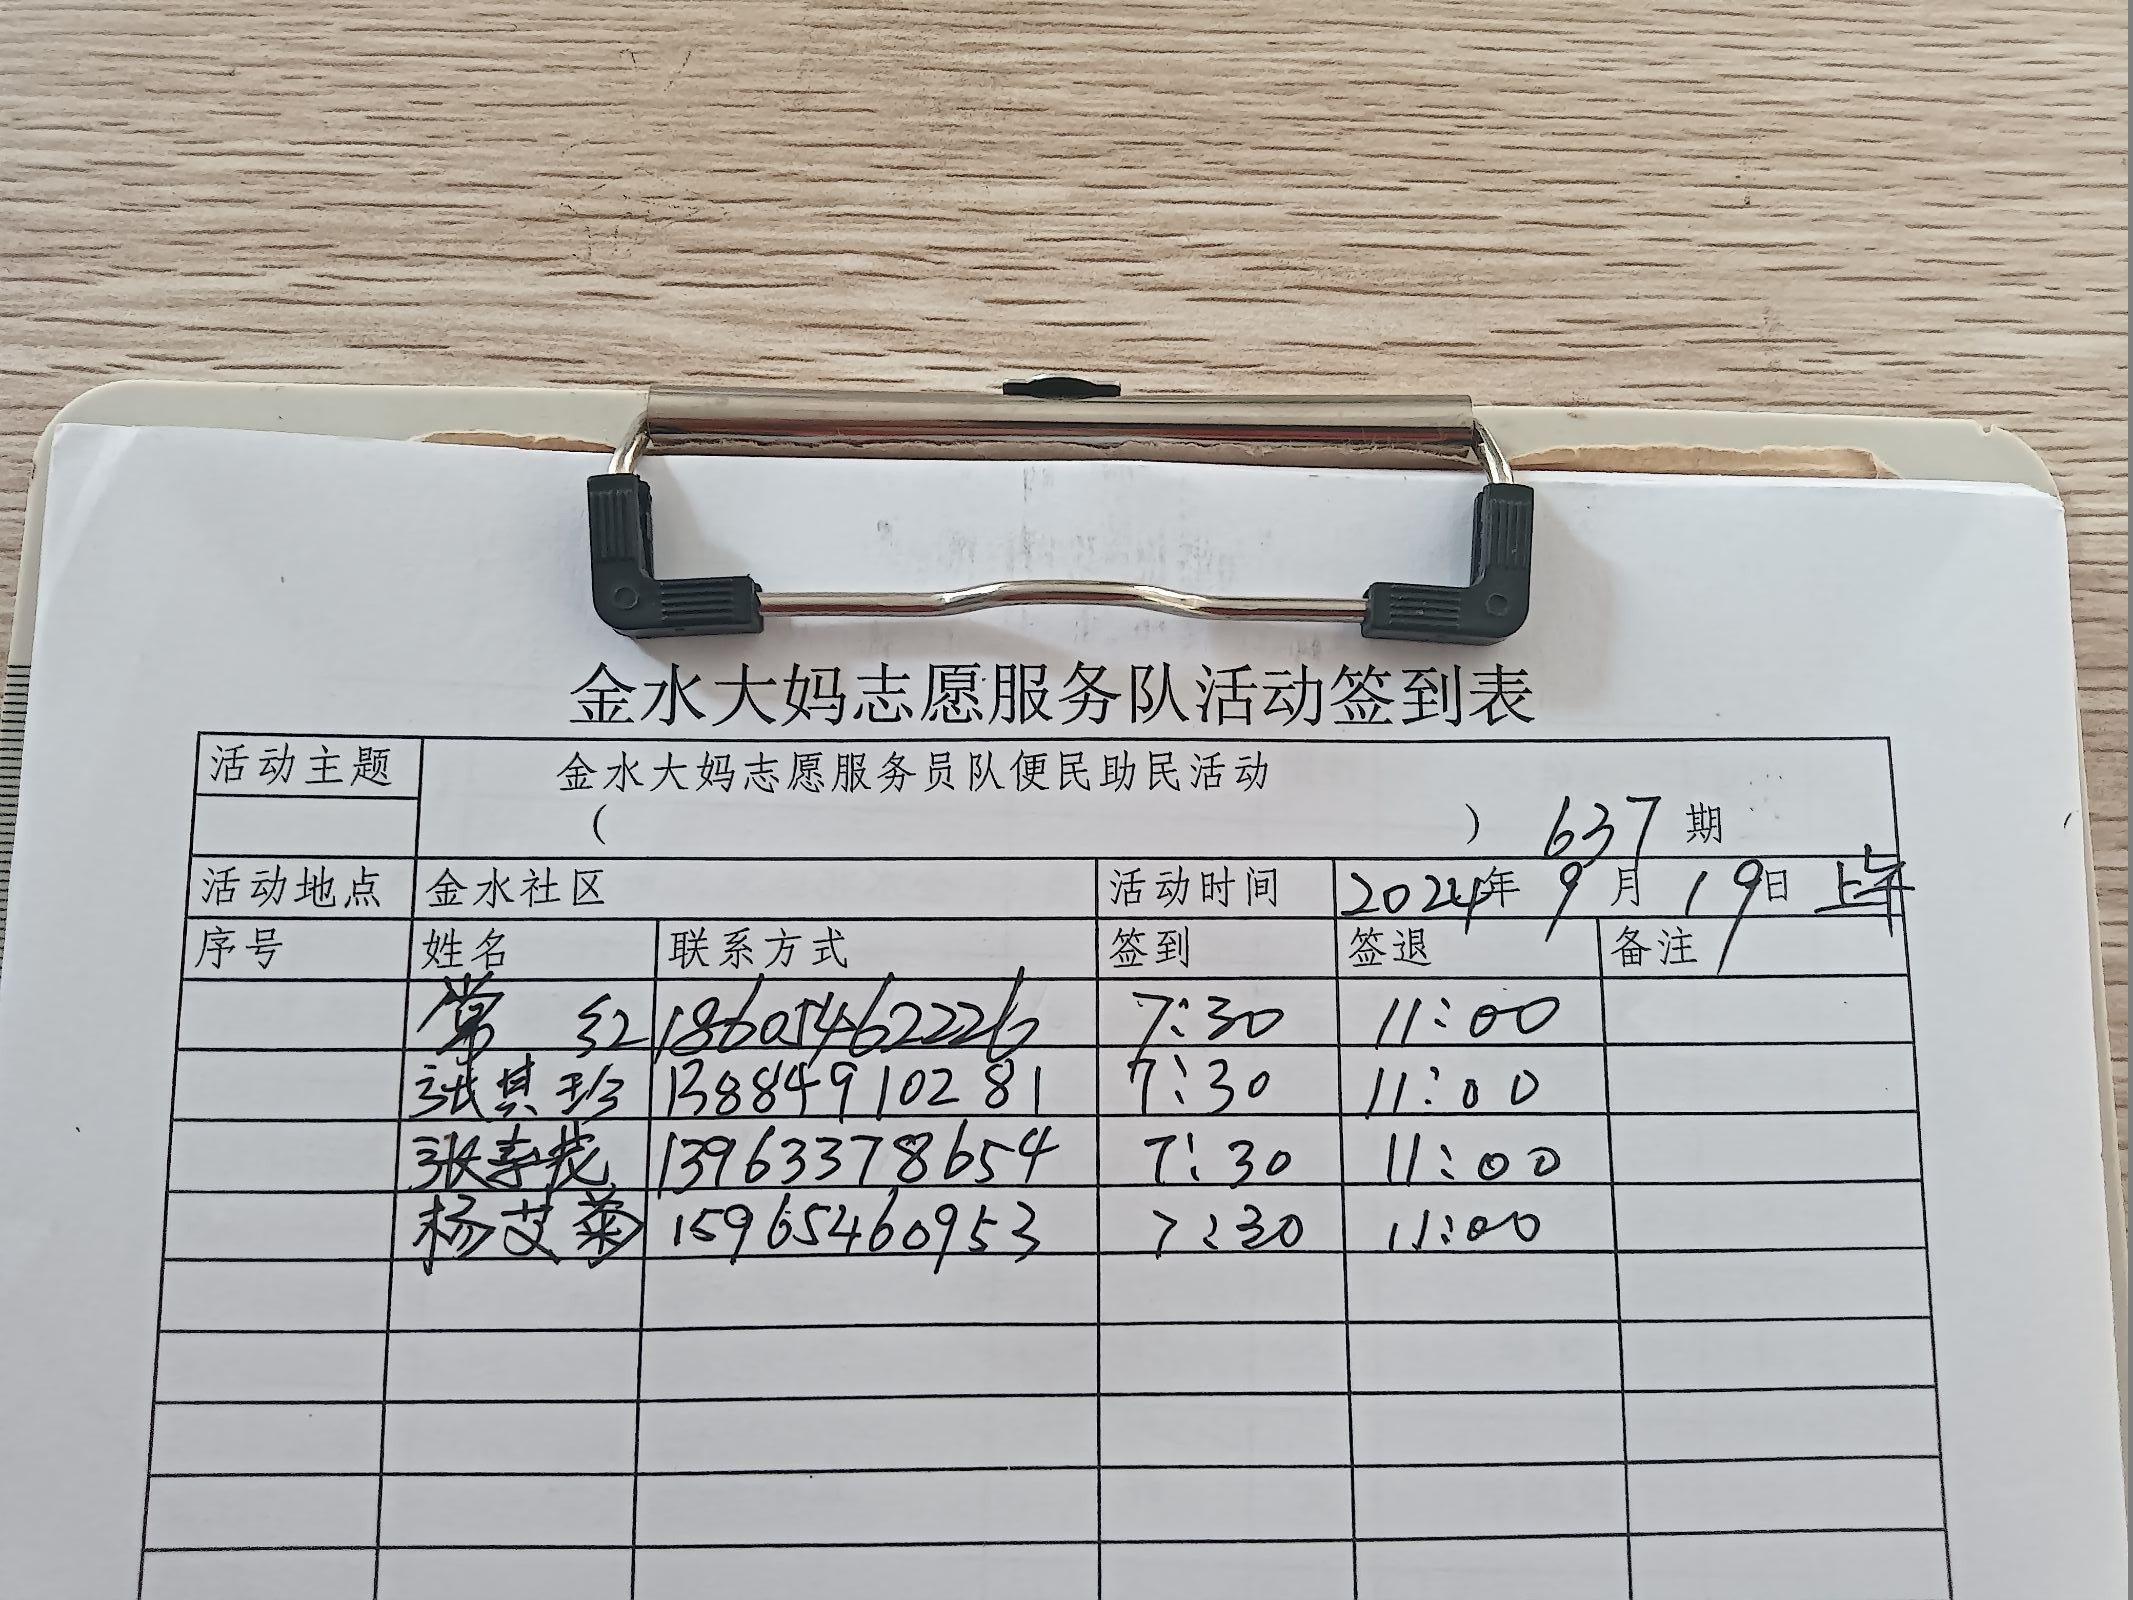 金水大妈志愿服务队活动签到表
活动主题 金水大妈志愿服务员队便民助民活动
( ) 637 期
活动地点 金水社区 活动时间 2024年 9 月 19日 上午
序号 姓名 联系方式 签到 签退 备注
常 红 18605462226 7:30 11:00
张其珍 13884910281 7:30 11:00
张 13963378654 7:30 11:00
杨艾菊 15965460953 7:30 11:00